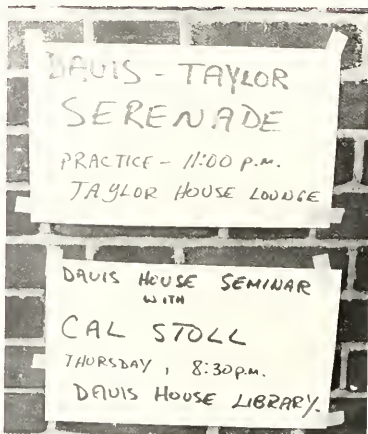 DAVIS - TAYLOR
SERENADE
PRACTICE - 11:00 P.M.
TAYLOR HOUSE LOUNGE
DAVIS HOUSE SEMINAR
WITH
CAL STOLL
THURSDAY, 8:30 P.M.
DAVIS HOUSE LIBRARY.